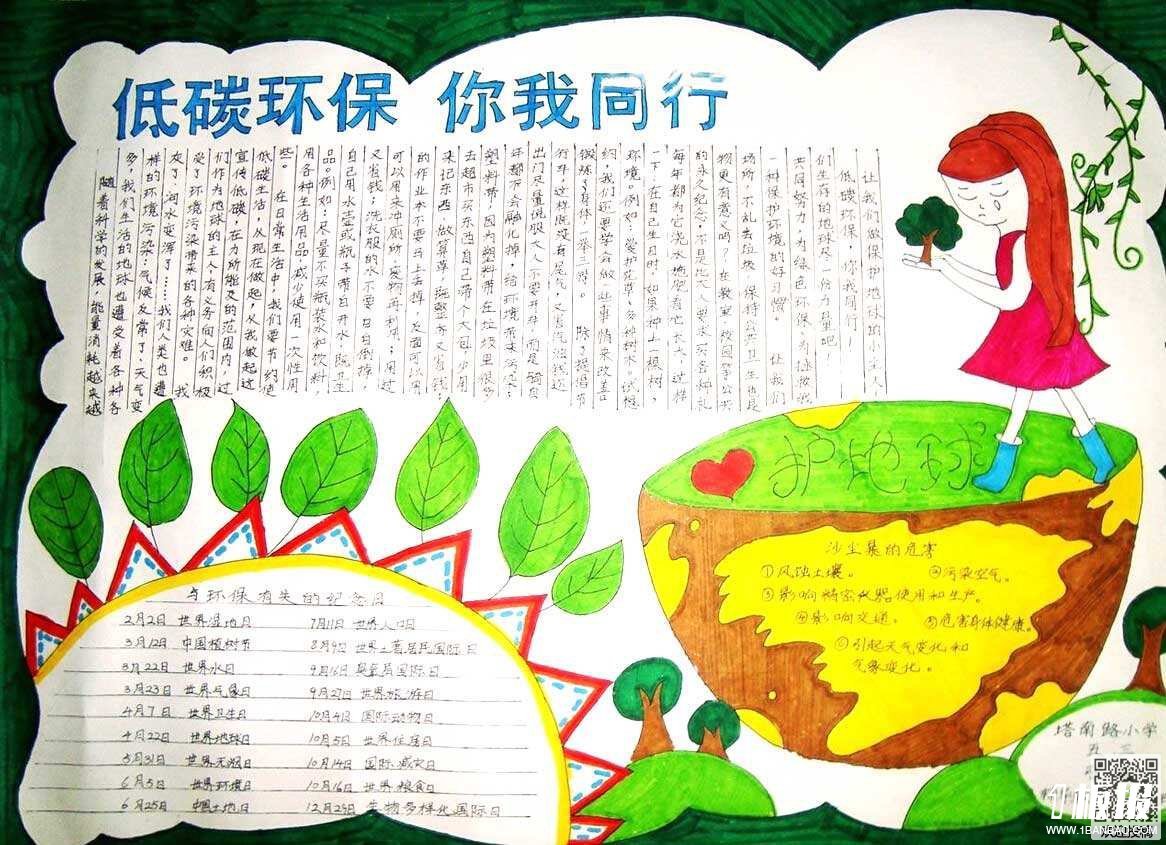 低碳环保 你我同行
随着科学的发展，能量消耗越来越
多，我们生活的地球也遭受着各种各
样的环境污染：气候反常了，天气变
灰了，河水变浑了……我们人类也遭
受了环境污染带来的各种灾难。 我
们作为地球的主人有义务向人们积极
宣传低碳，在力所能及的范围内，过
低碳生活，从现在做起，从我做起这
些。 在日常生活中，我们要节约使
用各种生活用品，减少使用一次性用
品。例如：尽量不买瓶装水和饮料，
自己用水壶或瓶子带白开水，既卫生
又省钱；洗衣服的水不要日日倒掉，
可以用来冲厕所，废物再利用；用过
的作业本不要马上丢掉，反面可以用
来记东西、做草算，既整齐又省钱；
去超市买东西自己带个大包，少用
塑料带，因为塑料带在垃圾里很多
年都不会融化掉，给环境带来污染；
出门尽量说服大人不要开车，而是骑自
行车，这样既没有尾气，又省汽油钱还
锻炼了身体，一举三得。 除了提倡节
约，我们还要学会做一些事情来改善
环境。例如：爱护花草，多种树木。试想
一下：在自己生日时，如果种上一棵树，
每年都为它浇水施肥看它长大，这样
的永久纪念，不是比大人要求买各种礼
物更有意义吗？在教室、校园等公共
场所，不乱丢垃圾，保持公共卫生也是
一种保护环境的好习惯。 让我们
共同努力，为绿色环保，为拯救我
们生存的地球尽一份力量吧！
低碳环保，你我同行！
让我们做保护地球的小主人！
护地球
沙尘暴的危害
①风蚀土壤。 ②污染空气。
③影响精密仪器使用和生产。
④影响交通。 ⑤危害身体健康。
⑥引起天气变化和
气象变化。
与环保有关的纪念日
2月2日 世界湿地日 7月11日 世界人口日
3月12日 中国植树节 8月9日 世界土著居民国际日
3月22日 世界水日 9月16日 臭氧层国际日
3月23日 世界气象日 9月27日 世界旅游日
4月7日 世界卫生日 10月4日 国际动物日
4月22日 世界地球日 10月5日 世界住房日
5月31日 世界无烟日 10月14日 国际减灾日
6月5日 世界环境日 10月16日 世界粮食日
6月25日 中国土地日 12月29日 生物多样化国际日
塔南路小学
五 三
1板报
WWW.1BANBAO.COM